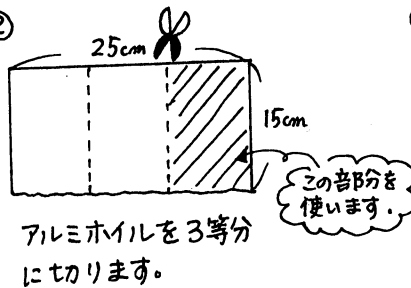 ②
25cm
15cm
この部分を
使います.
アルミホイルを3等分
に切ります。